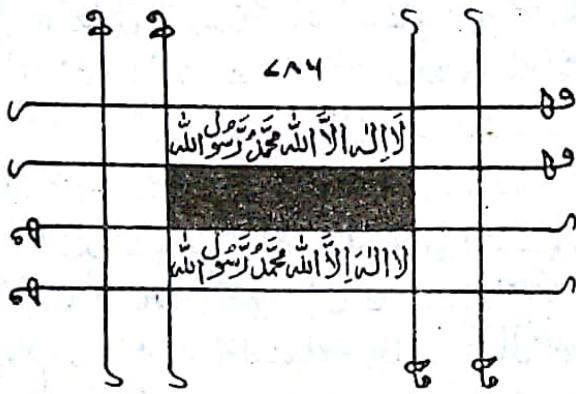 ۷۸۶
لَا اِلٰہَ اِلَّا اللّٰہُ مُحَمَّدٌ رَّسُوْلُ اللّٰہِ
لَا اِلٰہَ اِلَّا اللّٰہُ مُحَمَّدٌ رَّسُوْلُ اللّٰہِ